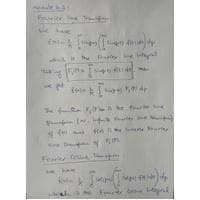 Module 6.3:
Fourier Sine Transform
We have
f(x) = 2/π ∫₀^∞ sin(px) (∫₀^∞ sin(pt) f(t) dt) dp
which is the Fourier Sine Integral
Taking F_s(p) = ∫₀^∞ sin(pt) f(t) dt, then
we get
f(x) = 2/π ∫₀^∞ sin(px) F_s(p) dp
The function F_s(p) is the Fourier sine
transform (or, infinite Fourier sine transform)
of f(x) and f(x) is the inverse Fourier
sine transform of F_s(p).
Fourier Cosine Transform
We have
f(x) = 2/π ∫₀^∞ cos(px) (∫₀^∞ cos(pt) f(t) dt) dp
which is the Fourier Cosine Integral